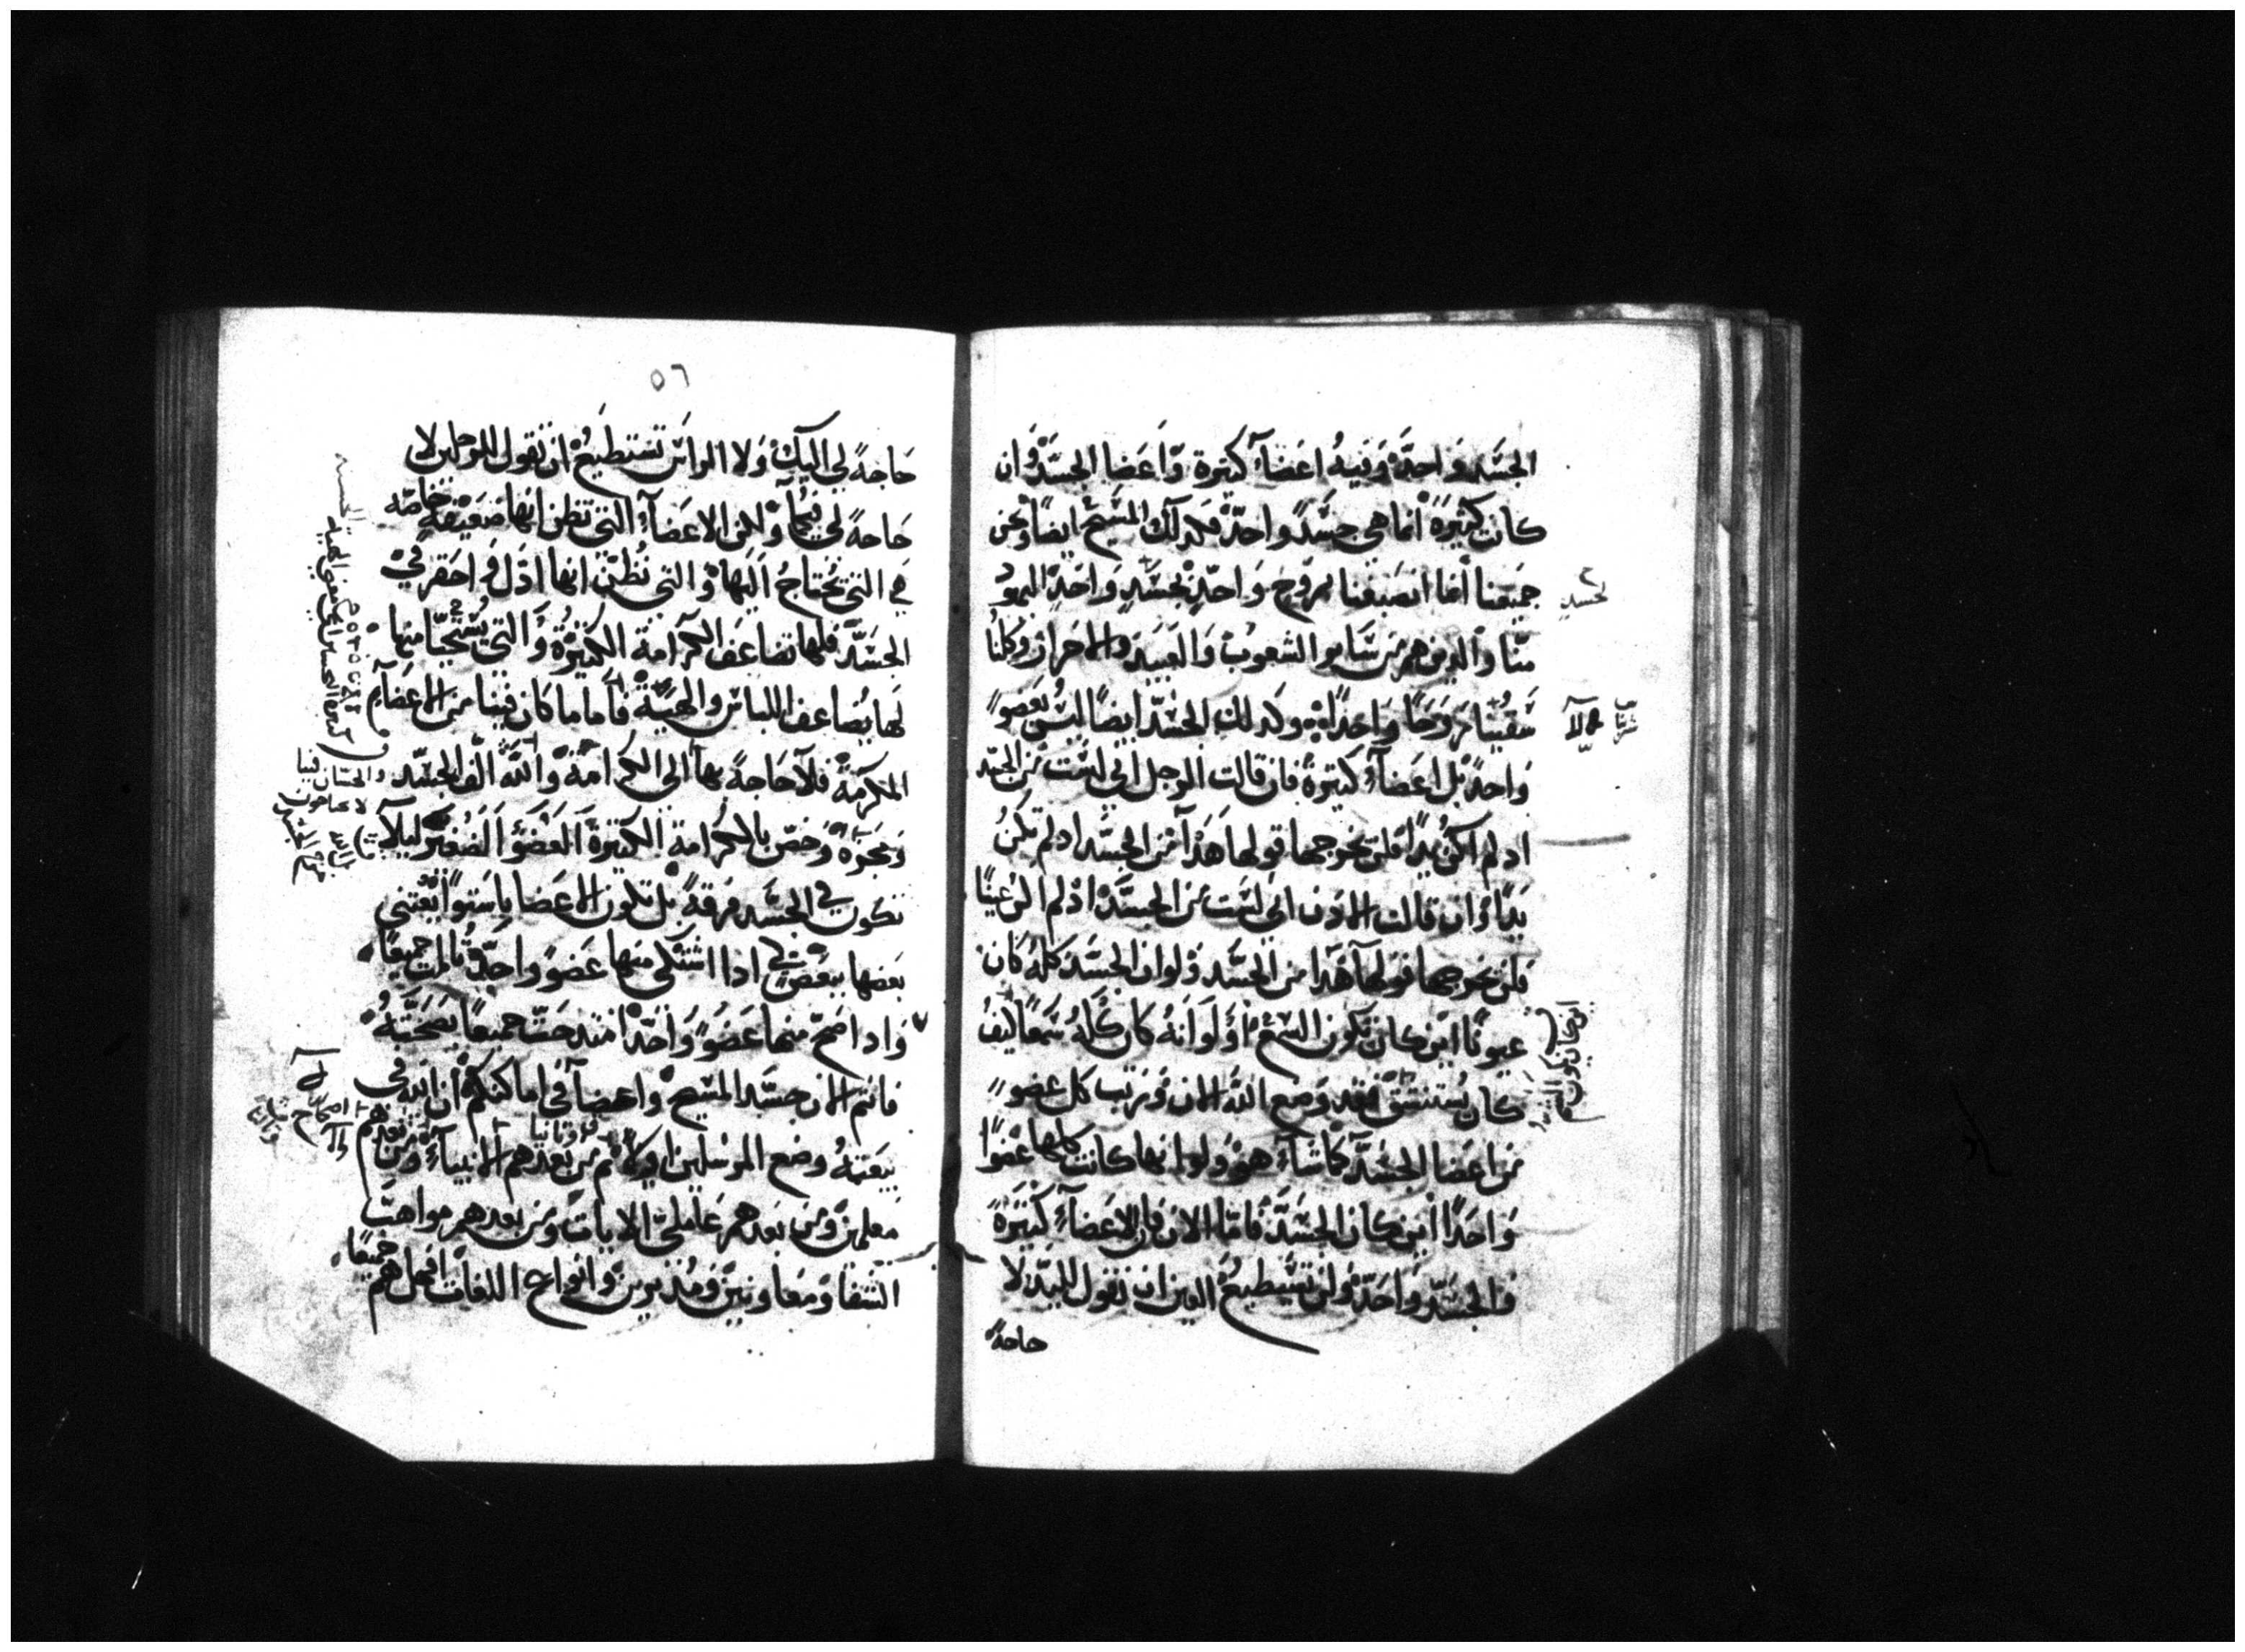 الجسَد واحدٌ وَفيهُ اعضآءُ كتيرة وَّاَعضا الجسَدْ وَان
كانت كثيرَةً انما هي جسَدً واحدٌ فكدلك المسَيحْ ايضًا ونحن
جميعنا انما انصَبغنا بروح وَاحدٍ بجسَدٍ وَاحدٍ اليهود
منا والدين هم من سَاير الشعوبْ وَالعَبيَد والاحَرار وكلنا
سَقينا روَحًا وَاحدًاه وكدلك الجسَد ايضًا ليسَ بعضوٍ
وَاحدٍ بل اعضآءُ كتيرةُ فان قالت الرجل اني لسَت من الجسد
اد لم اكن يدًا فلن يخرجها قولها هَدَا من الجسَد اد لم تكنُ
يدًا وان قالت الادن اني لسَت من الجسَد ادْ لم اكن عينًا
فلن يخرجها قولها هَدا من الجسَد وَلوان الجسَد كلهُ كان
عيونًا اين كان تكون السَمعْ اوَ لوَ انهُ كان كلهُ سَمعًا كيفُ
كان يُستنشق فقد وَضع اللهَ الان وَرتب كل عضوٍ
من اعضا الجسَد كماشآءَ هوْ ولو انها كانت كلها عُضوًا
وَاحدًا اين كان الجسَد فامّا الان فان الاعضآءُ كثيَرةً
وَالجسَد وَاحدٌ وَلن تسَتطيعُ العين ان تقول لليدّ لا
حاجةً
لجسَدٍ
اين كان يكون الشم
٥٦
حَاجةً لي اليكْ وَلا الراسَ تسَتطيعُ ان تقول للرجلين لا
حَاجةً لي فيكما وْلكن الاعضآء التي تظن انها ضعيفة خاصّه
هي التي يُحتاجُ اليَها وْ التي نُظنّ انها ادَل وَ احَقر في
الجسَدّ فلها تضاعَف الكرَامة الكتيرْة وَالتي يُسْتحيّا منها
لها يُضاعف اللباسَ والهيَئة فاَما ما كان فينا من الاعضآءِ
المكرَمةً فلآ حَاجةً بها الى الكرامة وْ اللهَ الّف الجسَد
وَمجزَه وَخصّ بالكرامة الكتيرةَ العَضوَ الصُغيّر ليلآ
تكون في الجسَد فرقةً بل تكون الاعضا باسَتوآ يعتني
بَعضها ببعضٍ ادا اشتكى منها عَضوً واحدٌ تالمت جميعًا
وَادا صَح منها عَضوً وَاحَدٌ امتدحَت جميعًا بصَحَتهُ
فانتم الان جسَد المسَيح وْ اعضآء في اماكنكمْ ان الله في
بيعَتهُ وضع المرسَلين اولآ ثم من بعدهم الانبيآء وَمن بعدهم
وتانيا
معلمين وَمن بعَدهم عَاملي الايات وَمن بعدهم مواهَب
الشفا وَمعَاونين وَمُدبرين وَانواع اللغات افهل هم جميعًا
والحسَان فينا
لا يحتاجون